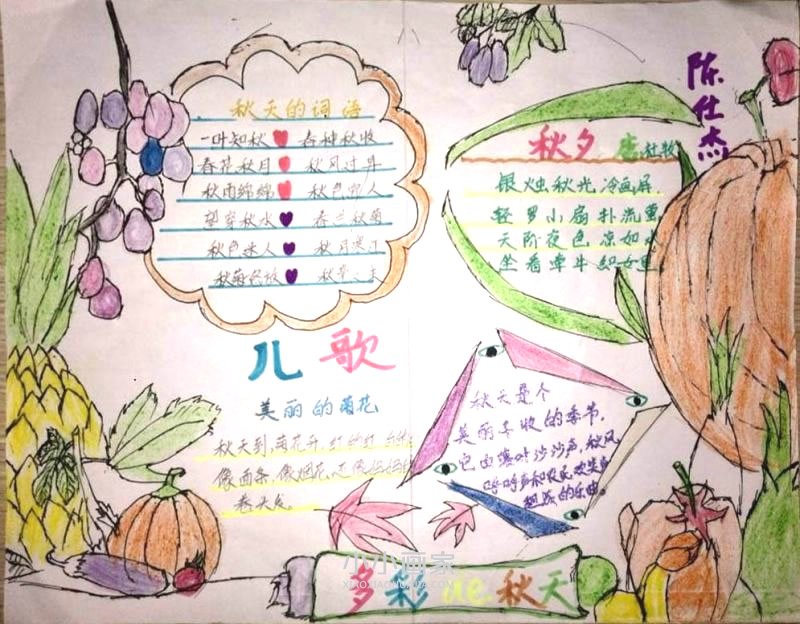 陈仕杰
秋天的词语
一叶知秋 春种秋收
春花秋月 秋风过耳
秋雨绵绵 秋色
望穿秋水 春兰秋菊
秋色迷人 秋月寒江
秋菊
秋夕 唐 杜牧
银烛秋光冷画屏
轻罗小扇扑流萤
天阶夜色凉如水
坐看牵牛织女星
儿歌
美丽的菊花
秋天到,菊花开,红的红
像面条,像烟花,还像妈妈的
卷头发
秋天是个
美丽丰收的季节,
它由壤叶沙沙声,秋风
呼呼声和农民欢笑声
组成的乐曲。
多彩de秋天
小小画家
XIAOXIAOHUAJIA.COM